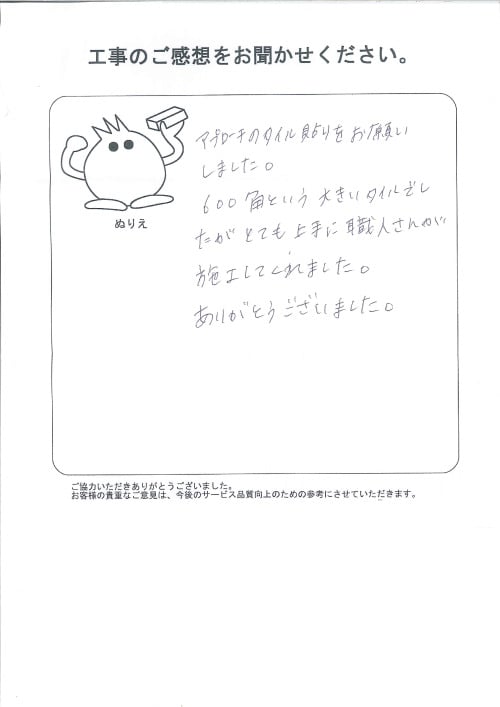 工事のご感想をお聞かせください。
アプローチのタイル貼りをお願い
しました。
600角という大きいタイルでし
たがとても上手に職人さんが
施工してくれました。
ありがとうございました。
ぬりえ
ご協力いただきありがとうございました。
お客様の貴重なご意見は、今後のサービス品質向上のための参考にさせていただきます。